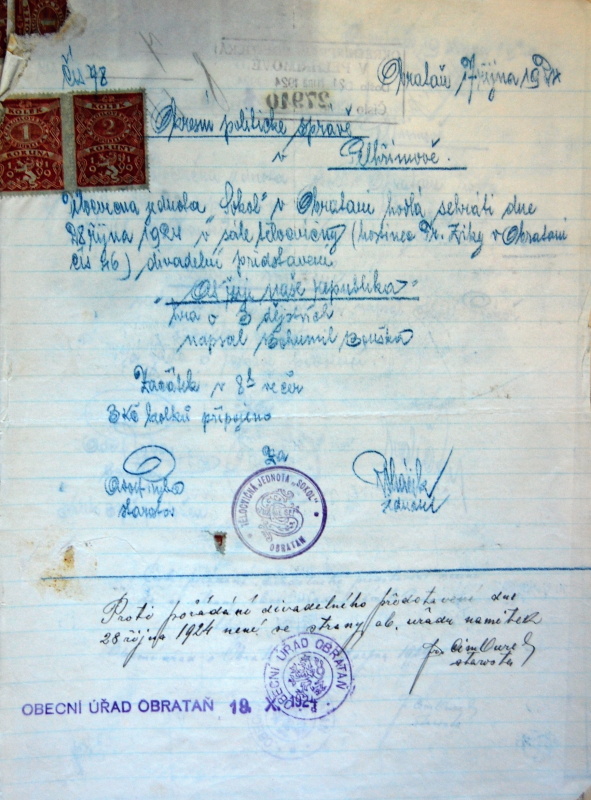 Čís 78
Obrataň 17 října 1924
Okresní politické správě
v Pelhřimově.
KOLEK
1
KORUNA
KOLEK
2
KORUNY
27910
1924
Tělocvičná jednota „Sokol" v Obratani hodlá sehráti dne
28 října 1924 v sále tělocvičny (hostinec Fr. Ziky v Obratani
čís 46) divadelní představení
„Ať žije naše republika"
hra o 3 dějstvích
napsal Bohumil Bouška
Začátek v 8h večer
3 Kč kolků připojeno
Za
starosta
jednatel
TĚLOCVIČNÁ JEDNOTA „SOKOL"
OBRATAŇ
Proti pořádání divadelního představení dne
28 října 1924 není se strany ob. úřadu námitek
starosta
OBECNÍ ÚŘAD OBRATAŇ
OBECNÍ ÚŘAD OBRATAŇ 18. X. 1924